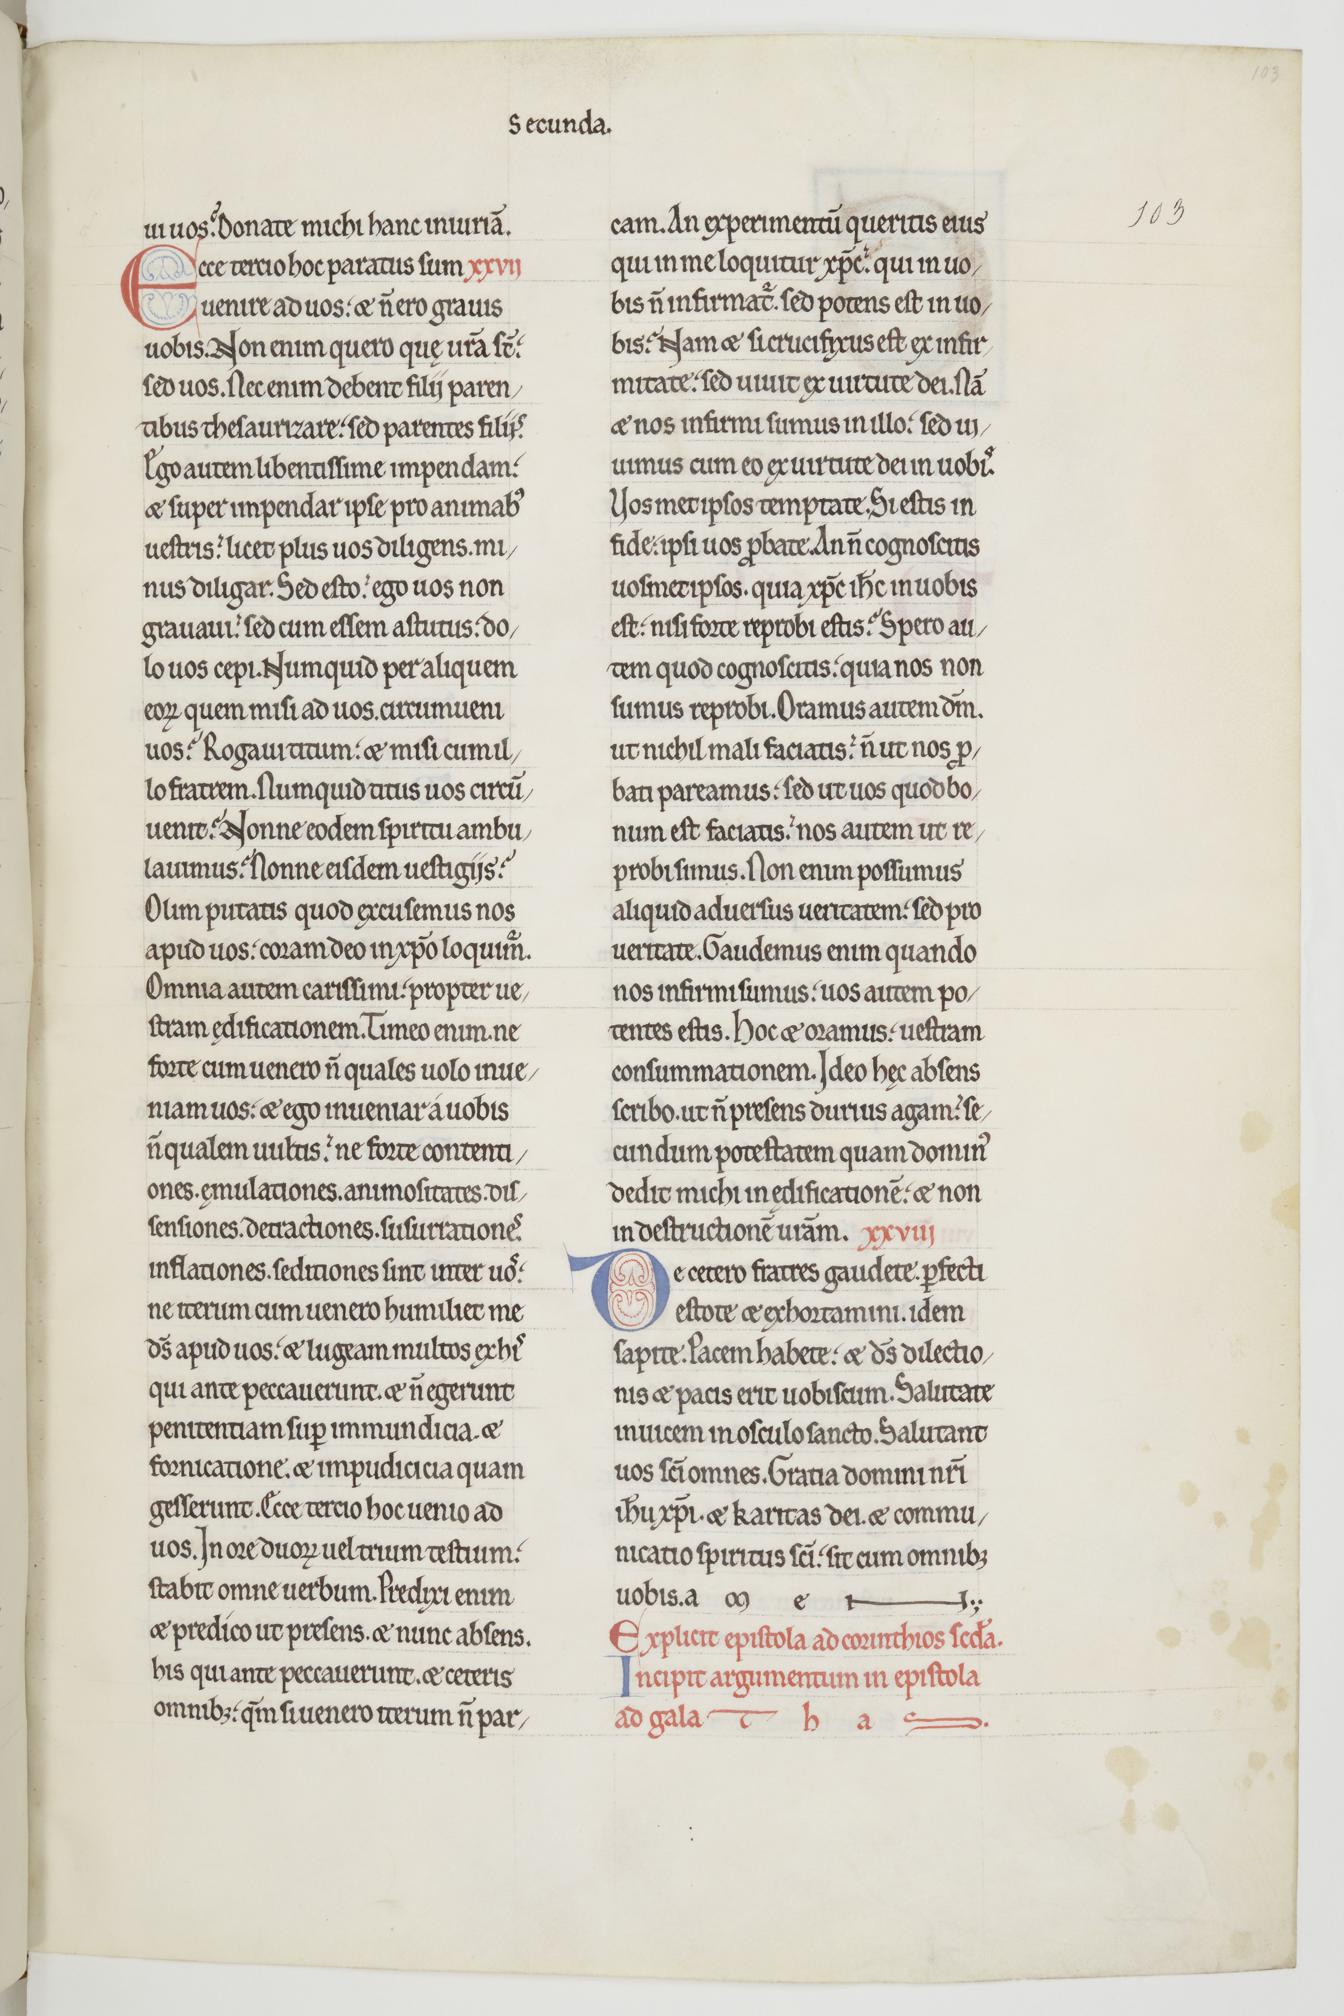 103
Secunda.
103
ui uos?́ Donate michi hanc iniuriā.
Ecce tercio hoc paratus sum xxvij
uenire ad uos: æ n̄ ero grauis
uobis. Non enim quero quę ur̄a st̄:
sed uos. Nec enim debent filij paren/
tibus thesaurizare: sed parentes filijs.
Ego autem libentissime impendam:
æ super impendar ipse pro animabꝰ
uestris: licet plus uos diligens. mi/
nus diligar. Sed esto: ego uos non
grauaui: sed cum essem astutus: do/
lo uos cepi. Numquid per aliquem
eoꝝ quem misi ad uos. circumueni
uos? Rogaui titum: æ misi cum il/
lo fratrem. Numquid titus uos circū/
uenit? Nonne eodem spiritu ambu/
lauimus? Nonne eisdem uestigijs?
Olim putatis quod excusemus nos
apud uos: coram deo in xp̄o loquim̃.
Omnia autem carissimi: propter ue/
stram ędificationem. Timeo enim. ne
forte cum uenero n̄ quales uolo inue/
niam uos: æ ego inueniar á uobis
n̄ qualem uultis: ne forte contenti/
ones. ęmulationes. animositates. dis/
sensiones. detractiones. susurrationes.
inflationes. seditiones sint inter uos:
ne iterum cum uenero humiliet me
ds̄ apud uos: æ lugeam multos ex his
qui ante peccauerunt. æ n̄ egerunt
penitentiam suꝑ immundicia. æ
fornicatione. æ impudicicia quam
gesserunt. Ecce tercio hoc uenio ad
uos. In ore duoꝝ uel trium testium:
stabit omne uerbum. Predixi enim
æ predico ut presens. æ nunc absens.
his qui ante peccauerunt. æ ceteris
omnibꝫ: qm̄ si uenero iterum n̄ par/
cam. An experimentū queritis eius
qui in me loquitur xp̄c: qui in uo/
bis n̄ infirmat̃. sed potens est in uo/
bis? Nam æ si crucifixus est ex infir/
mitate: sed uiuit ex uirtute dei. Nā
æ nos infirmi sumus in illo: sed ui/
uimus cum eo ex uirtute dei in uobis.
Vosmet ipsos temptate. Si estis in
fide: ipsi uos ꝓbate. An n̄ cognoscitis
uosmet ipsos. quia xp̄c ih̄c in uobis
est: nisi forte reprobi estis? Spero au/
tem quod cognoscitis: quia nos non
sumus reprobi. Oramus autem dm̄.
ut nichil mali faciatis: n̄ ut nos ꝓ/
bati pareamus: sed ut uos quod bo/
num est faciatis: nos autem ut re/
probi simus. Non enim possumus
aliquid aduersus ueritatem: sed pro
ueritate. Gaudemus enim quando
nos infirmi sumus: uos autem po/
tentes estis. Hoc æ oramus: uestram
consummationem. Ideo hęc absens
scribo. ut n̄ presens durius agam: se/
cundum potestatem quam dominꝰ
dedit michi in ędificationē: æ non
in destructionē ur̄am. xxviij
De cetero fratres gaudete. ꝑfecti
estote æ exhortamini. idem
sapite. Pacem habete: æ ds̄ dilectio/
nis æ pacis erit uobiscum. Salutate
inuicem in osculo sancto. Salutant
uos sc̄i omnes. Gratia domini nr̄i
ih̄u xp̄i. æ karitas dei. æ commu/
nicatio spiritus sc̄i: sit cum omnibꝫ
uobis. a m e n.
Explicit epistola ad corinthios scd̄a.
Incipit argumentum in epistola
ad gala t h a s.